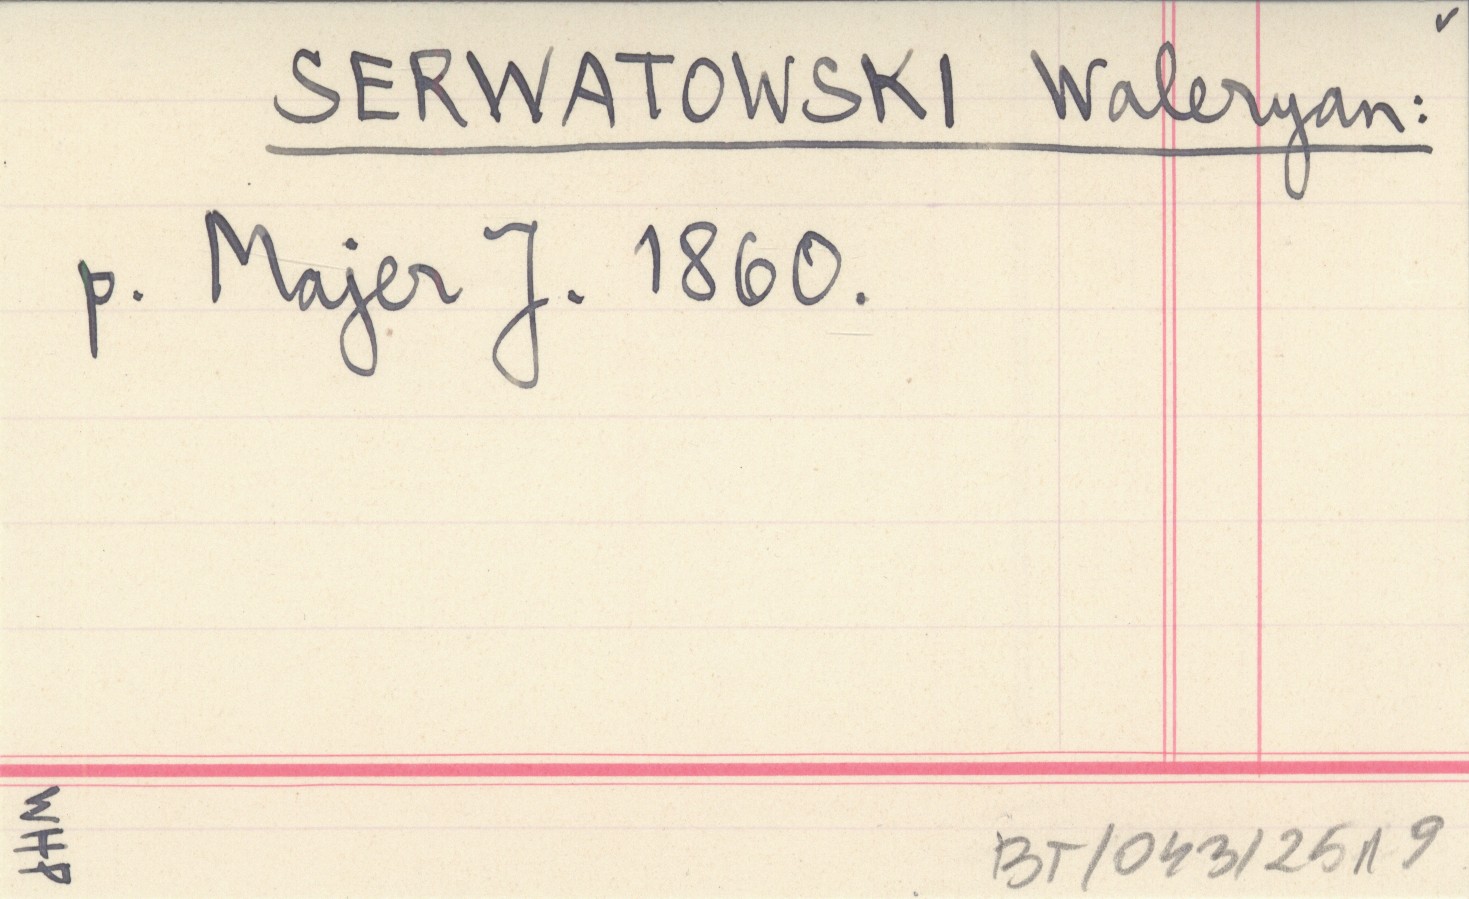 SERWATOWSKI Waleryan:
p. Majer J. 1860.
WHP
BT/043/25/19